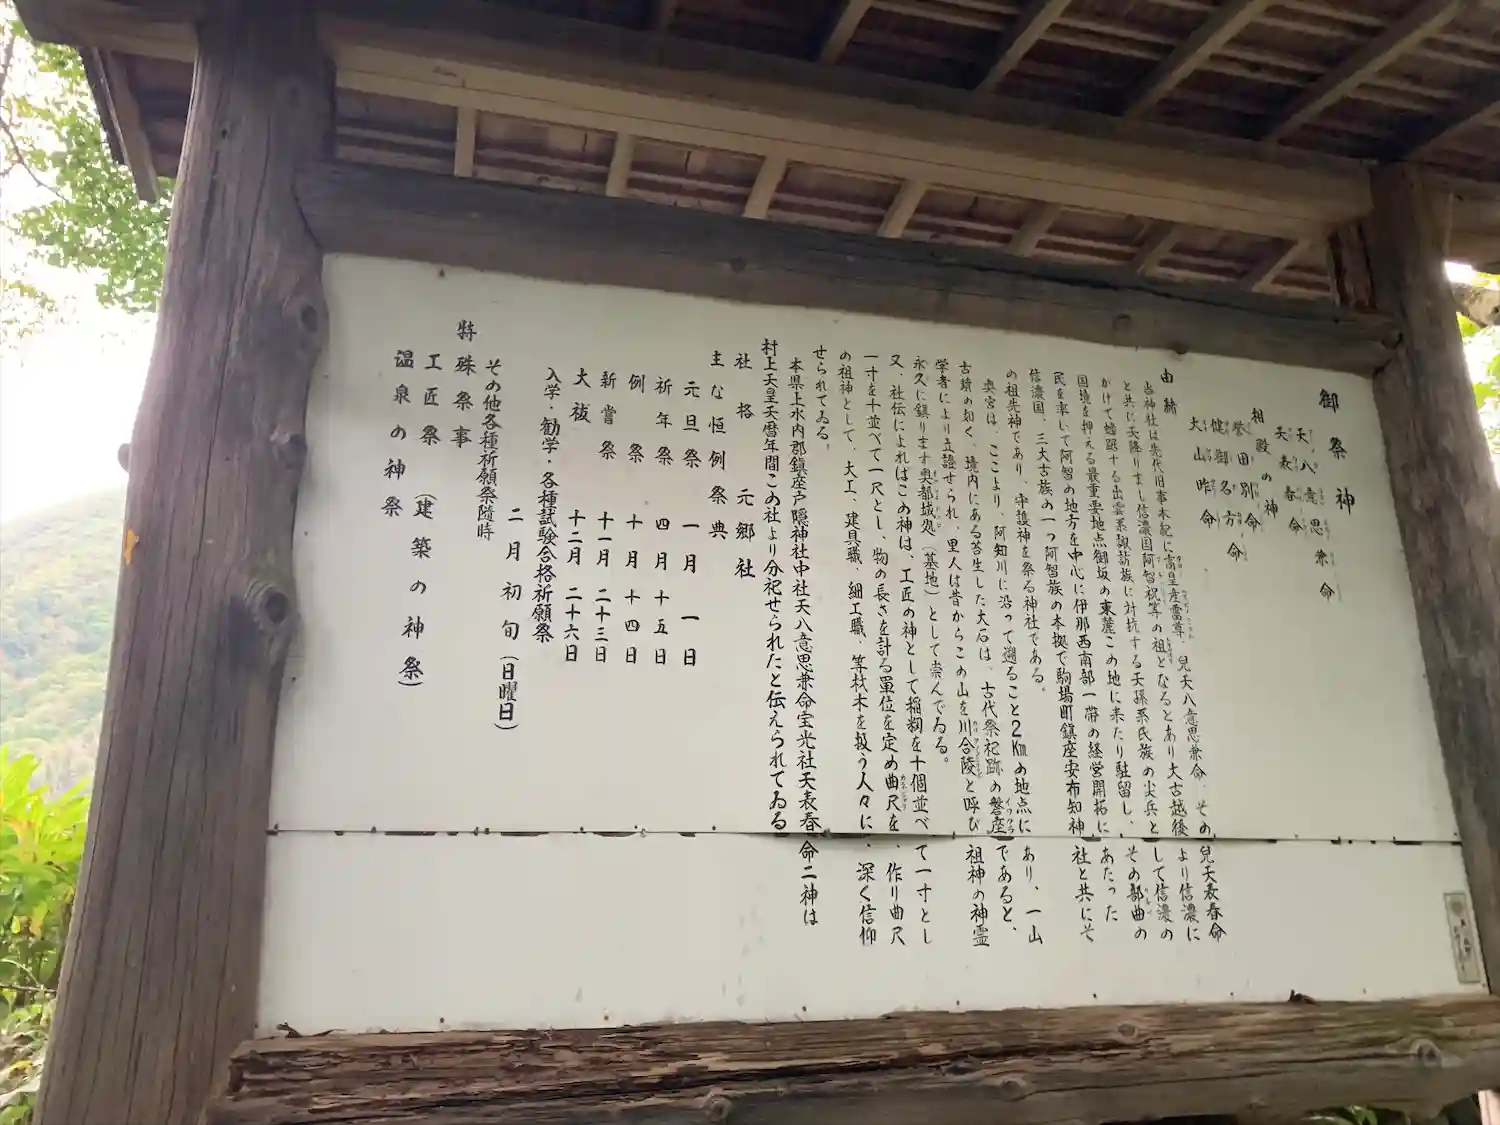 御祭神
天八意思兼命
天表春命
相殿の神
誉田別命
健御名方命
大山咋命
由緒
当神社は先代旧事本紀に高皇産霊尊、児天八意思兼命、その児天表春命
と共に天降りまし信濃国阿智祝等の祖となるとあり大古越後より信濃に
かけて蟠踞する出雲系諏訪族に対抗する天孫系氏族の尖兵として信濃の
国境を押える最重要地点御坂の東麓この地に来たり駐留し、その部曲の
民を率いて阿智の地方を中心に伊那西南部一帯の経営開拓にあたった
信濃国、三大古族の一つ阿智族の本拠で駒場町鎮座安布知神社と共にそ
の祖先神であり、守護神を祭る神社である。
奥宮は、ここより、阿知川に沿って遡ること2Kmの地点にあり、一山
古墳の如く、境内にある苔生した大石は、古代祭祀跡の磐座であると、
学者により立証せられ、里人は昔からこの山を川合陵と呼び祖神の神霊
永久に鎮ります奥都城処(墓地)として崇んでゐる。
又、社伝によればこの神は、工匠の神として稲籾を十個並べて一寸とし
一寸を十並べて一尺とし、物の長さを計る單位を定め曲尺を、作り曲尺
の祖神として、大工、建具職、細工職、等材木を扱う人々に、深く信仰
せられてゐる。
本県上水内郡鎮座戸隠神社中社天八意思兼命宝光社天表春命二神は
村上天皇天暦年間この社より分祀せられたと伝えられてゐる
社格 元郷社
主な恒例祭典
元旦祭 一月一日
祈年祭 四月十五日
例祭 十月十四日
新嘗祭 十一月二十三日
大祓 十二月二十六日
入学・勧学・各種試験合格祈願祭
二月初旬(日曜日)
その他各種祈願祭随時
特殊祭事
工匠祭(建築の神祭)
温泉の神祭